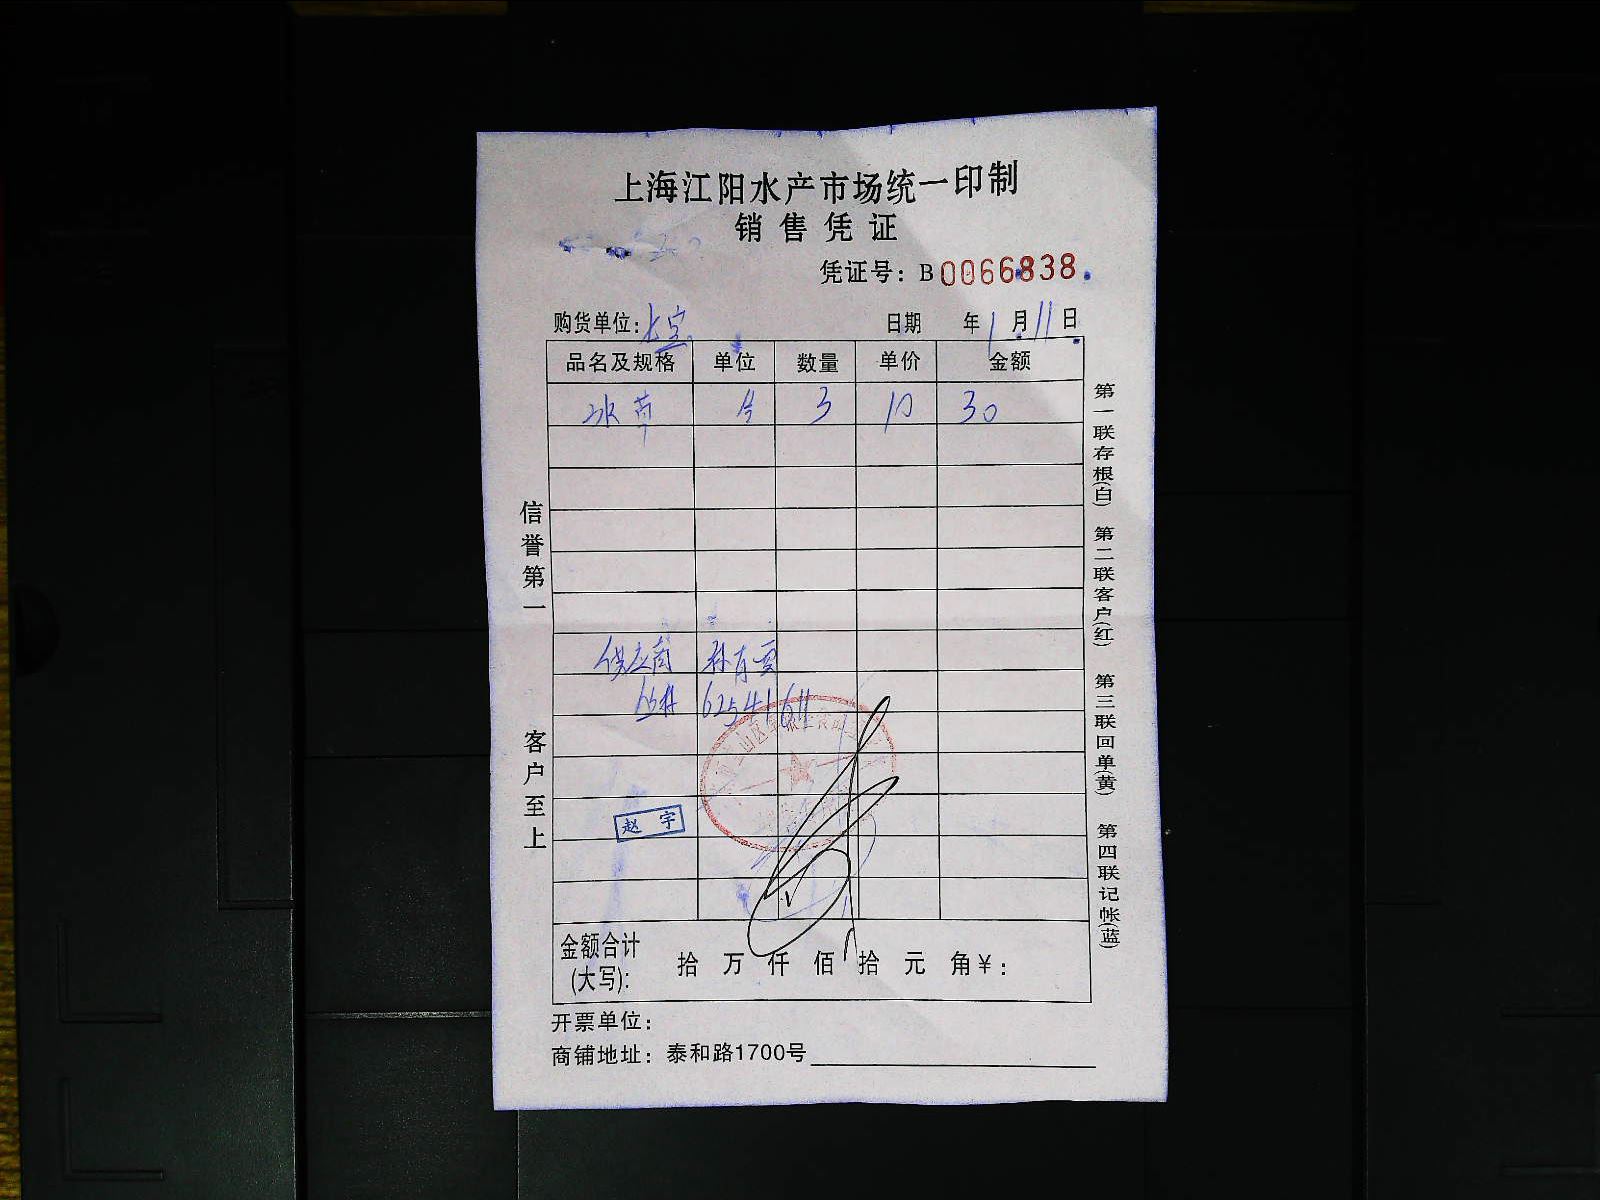 上海江阳水产市场统一印制
销售凭证
凭证号：B0066838
购货单位： 日期 年1月11日
品名及规格 单位 数量 单价 金额
冰草 3 10 30
供应商
62541611
赵宇
金额合计(大写)： 拾 万 仟 佰 拾 元 角¥：
开票单位：
商铺地址：泰和路1700号
信誉第一 客户至上
第一联存根(白) 第二联客户(红) 第三联回单(黄) 第四联记帐(蓝)